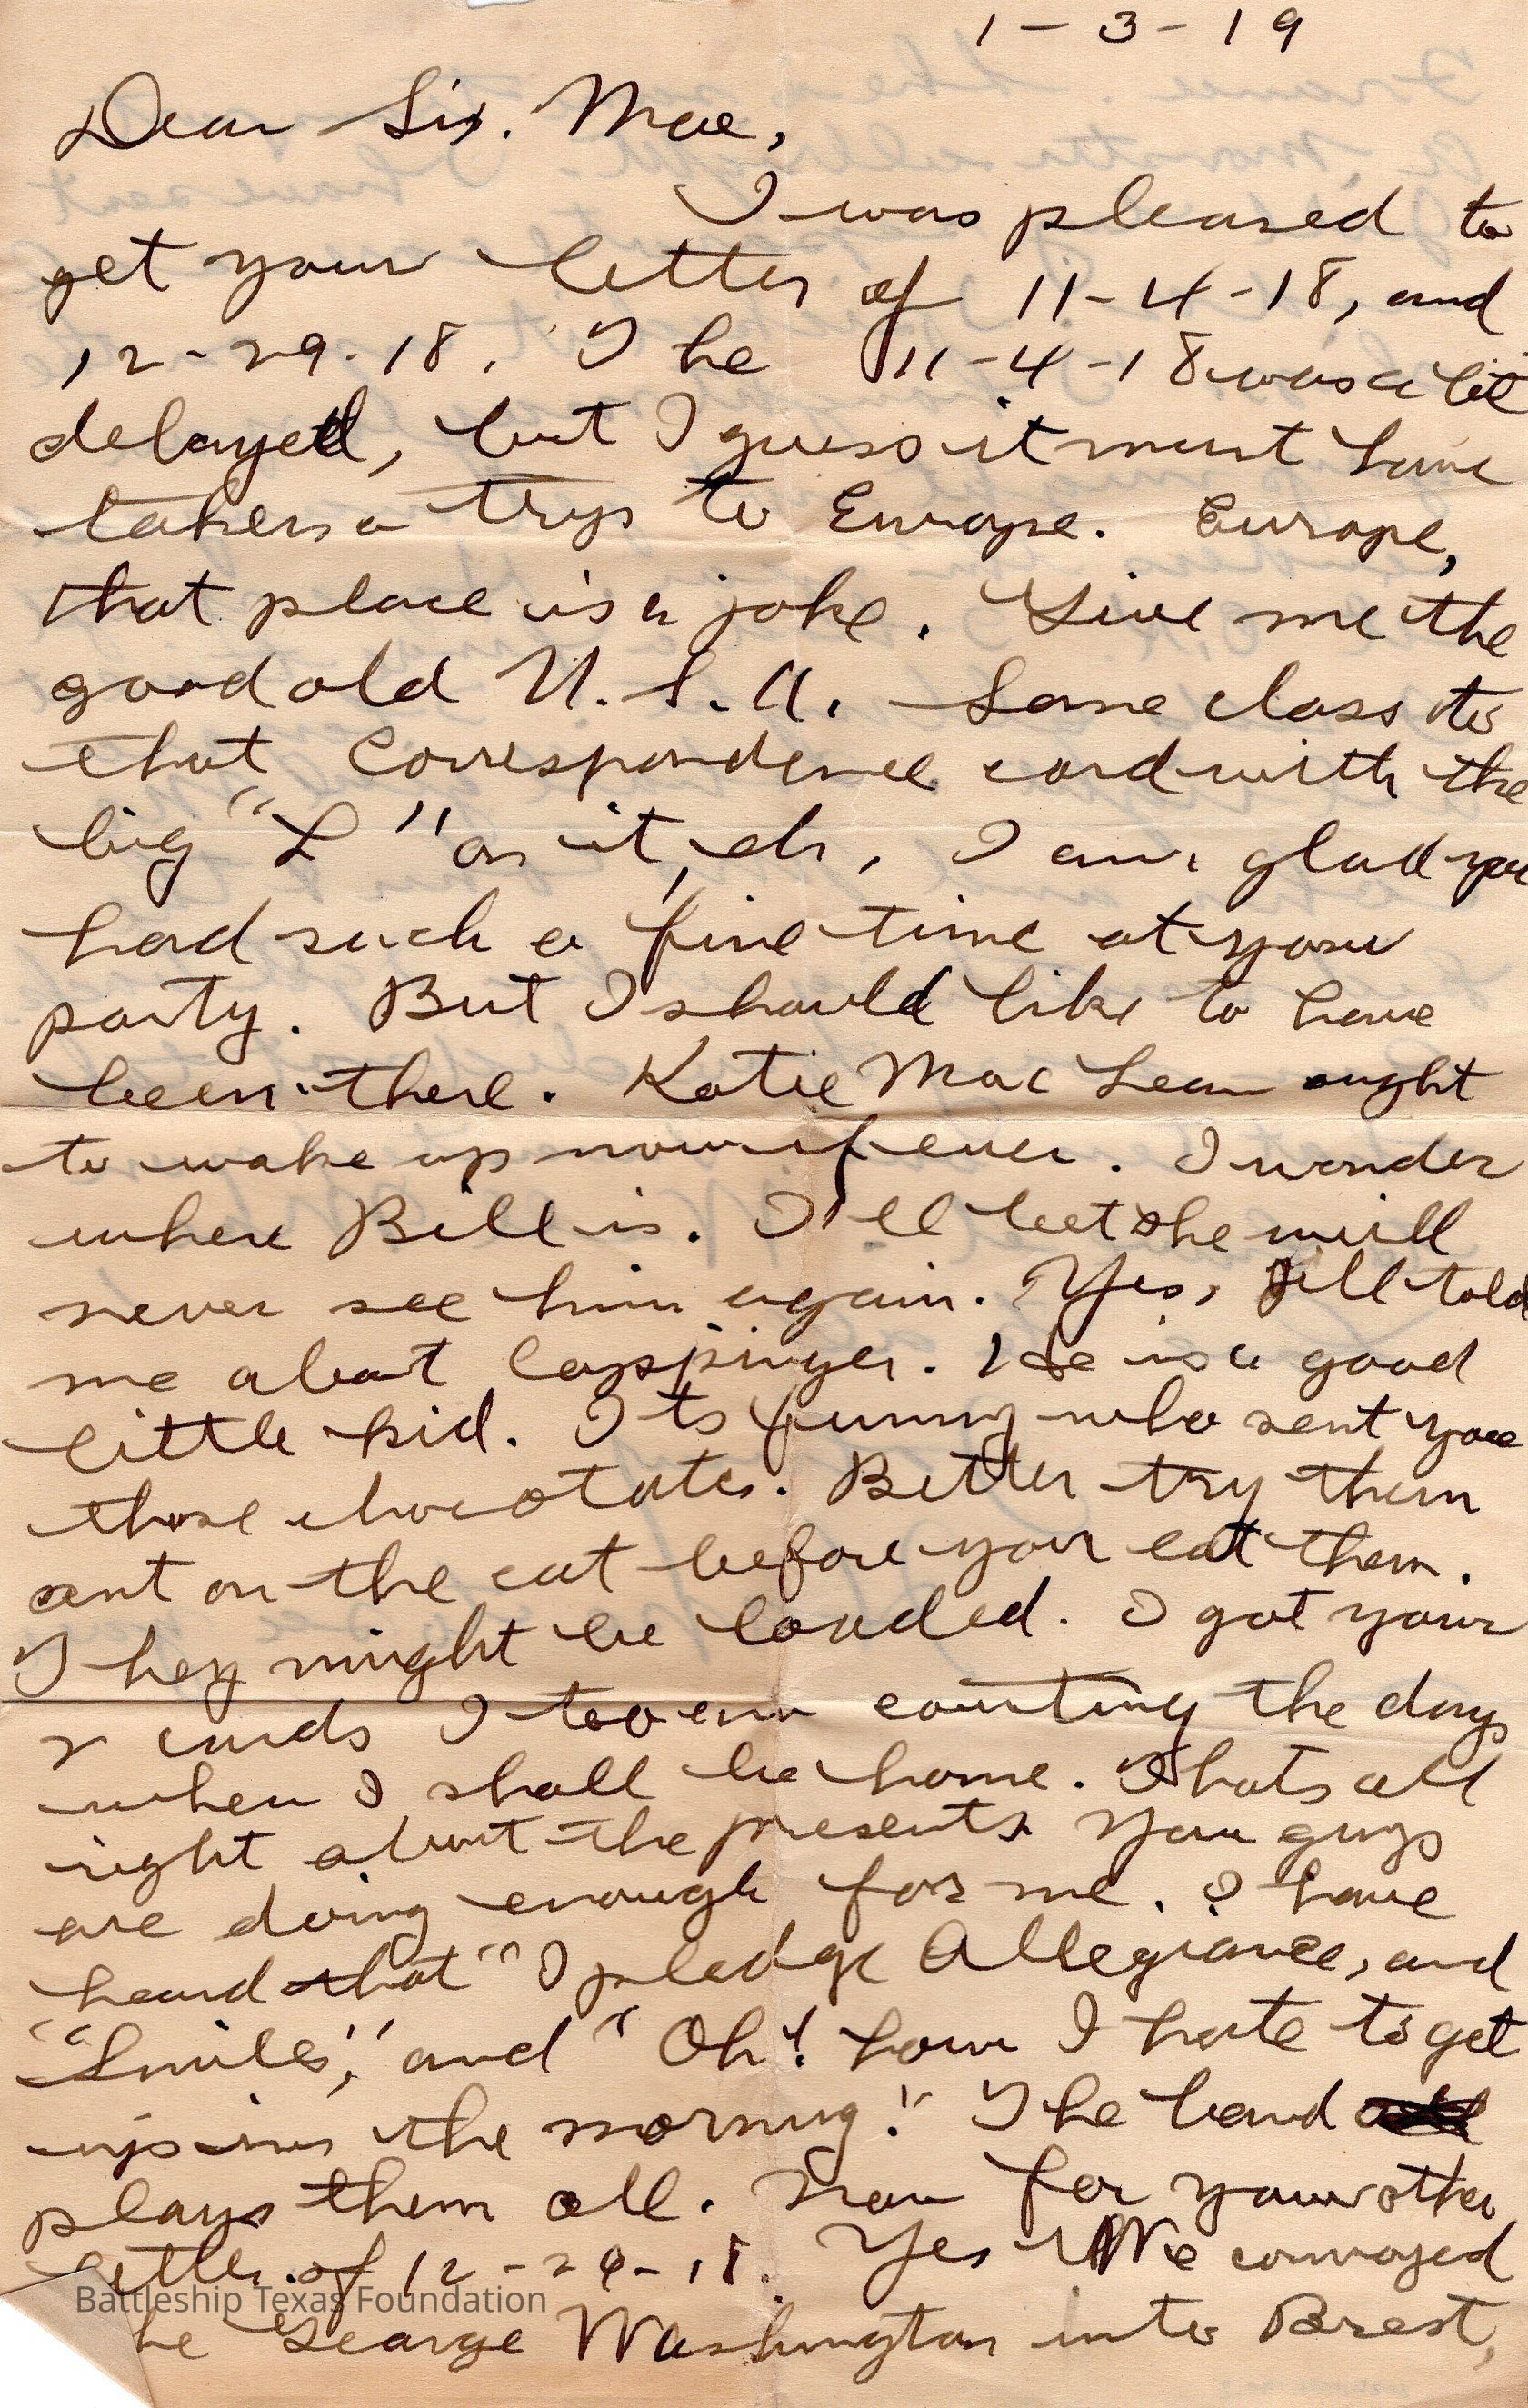 1-3-19
Dear Sis. Mae,
I was pleased to
get your letter of 11-4-18, and
12-29-18. The 11-4-18 was a bit
delayed, but I guess it must have
taken a trip to Europe. Europe,
that place is a joke. Give me the
good old U.S.A. Some class to
that Correspondence card with the
big "L" on it, eh, I am glad you
had such a fine time at your
party. But I should like to have
been there. Katie Mac Lean ought
to wake up now if ever. I wonder
where Bill is. I'll bet she will
never see him again. Yes, Jill told
me about Coppinger. He is a good
little kid. Its funny who sent you
those chocolates. Better try them
out on the cat before you eat them.
They might be loaded. I got your
2 cards I too am counting the days
when I shall be home. Thats all
right about the presents You guys
are doing enough for me. I have
heard that "I pledge Allegiance, and
"Smiles," and "Oh! how I hate to get
up in the morning!" The band
plays them all. Now for your other
letter of 12-29-18. Yes We convoyed
he George Washington into Brest,
Battleship Texas Foundation